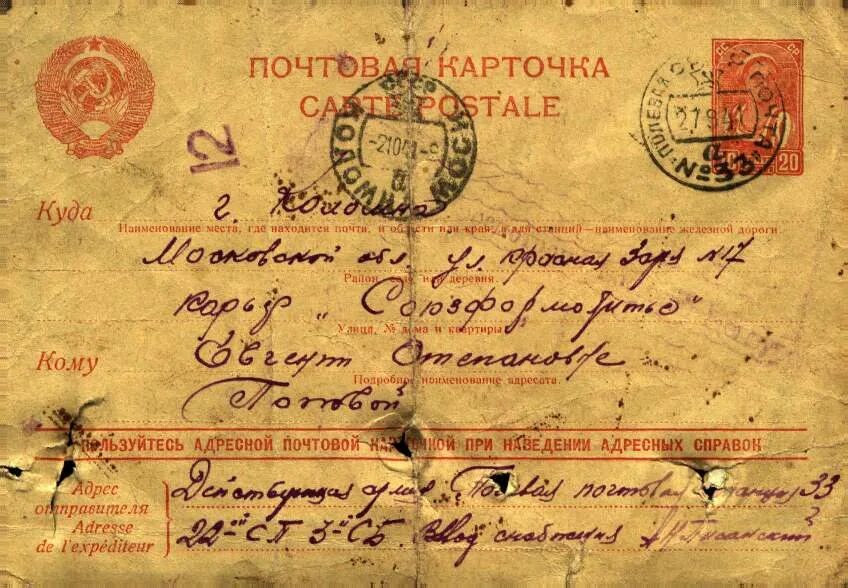 ПОЧТОВАЯ КАРТОЧКА
CARTE POSTALE
СССР
20
СССР КОЛОМНА МОСК
-2 10 41 -9
ПОЛЕВАЯ ПОЧТА № 33
27 9 41
12
Куда г. Коломна
Наименование места, где находится почта, и области или края, а для станций—наименование железной дороги.
Московской обл. ул. Красная Заря N17
Район, село или деревня.
карьер „Союзформолитье"
Улица, № дома и квартиры
Кому Евгении Степановне
Подробное наименование адресата.
Поповой
ПОЛЬЗУЙТЕСЬ АДРЕСНОЙ ПОЧТОВОЙ КАРТОЧКОЙ ПРИ НАВЕДЕНИИ АДРЕСНЫХ СПРАВОК
Адрес
отправителя
Adresse
de l'expéditeur
Действующая армия Полевая почтовая станция 33
22ой СП 3й СБ. Взвод снабжения